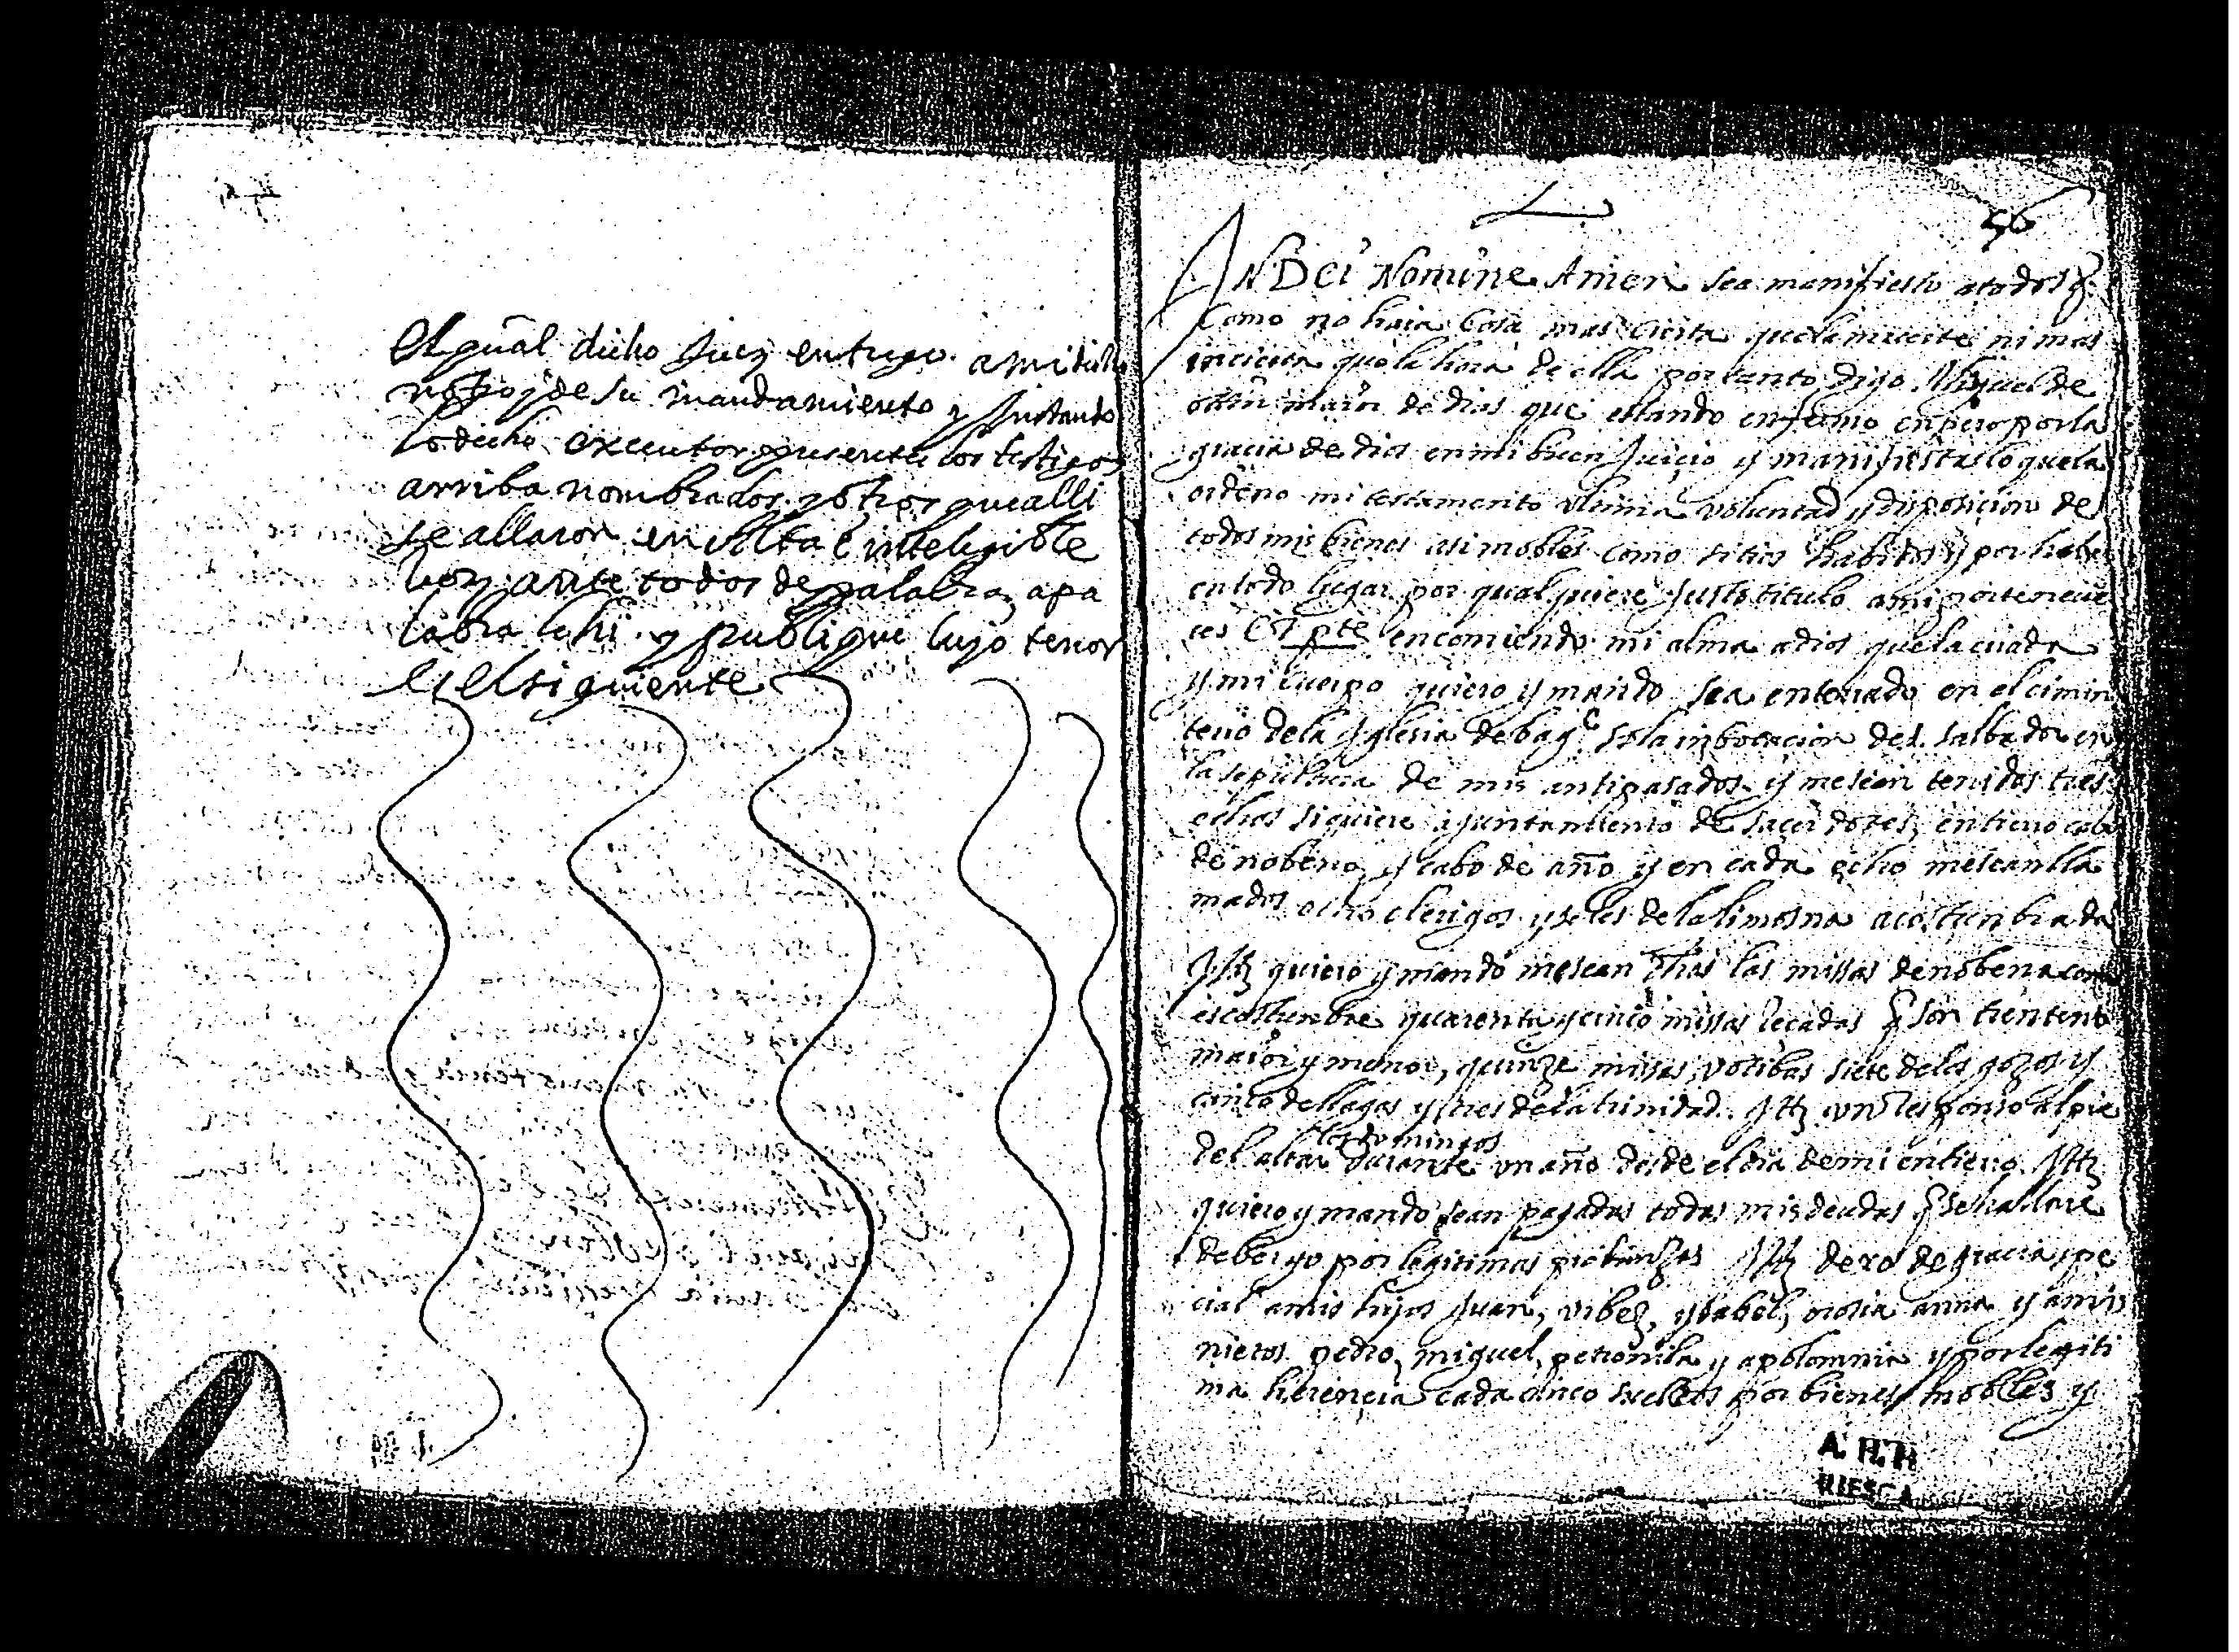 El qual dicho Juez entrego a mi dicho
noto y de su mandamiento y Instando
lo dicho executor presentes los testigos
arriba nombrados y otros que alli
se allaron en Alta e inteligible
boz ante todos de palabra apa
labra lehi y publique cujo tenor
es el siguiente
56
IN Dei Nomine Amen sea manifiesto a todos q
Como no haia Cosa mas Cierta que la muerte ni mas
incierta que la hora de ella por tanto digo Miguel de
maior de dias que estando enfermo enpero por la
gracia de Dios en mi buen Juicio y manifiesta loquela
ordeno mi testamento ultima voluntad y disposicion de
todos mis bienes asi mobles como sitios habidos y por haber
en todo lugar por qualquiere Justo titulo a mi pertenecien
tes encomiendo mi alma a dios que la criada
y mi cuerpo quiero y mando sea enterrado en el cimin
terio de la Iglesia de bag so la inbocacion del salbador en
la sepultura de mis antipasados y me sean tenidos tres
echos siquiere ajuntamiento de sacerdotes, entierro cabo
de nobena, y cabo de año y en cada echo me sean lla
mados ocho clerigos y se les de la limosna acostunbrada
Itt quiero y mando me sean dhas las missas de nobena como
es costunbre quarenta y cinco missas recadas q son trenteno
maior y menor, quinze missas votibas siete de los gozos y
cinco de llagas y tres de la trinidad. Itt un responso al pie
los domingos
del altar durante un año desde el dia de mi entierro Itt
quiero y mando sean pagadas todas mis deudas q se hallare
deber yo por legitimas probanzas Itt dexo de gracia spe
cial a mis hijos Juan, ysabel, orosia anna y a mis
nietos pedro, miguel, petronila y apolonnia y por legiti
ma herencia cada cinco sueldos por bienes mobles y
A. H. P.
HUESCA